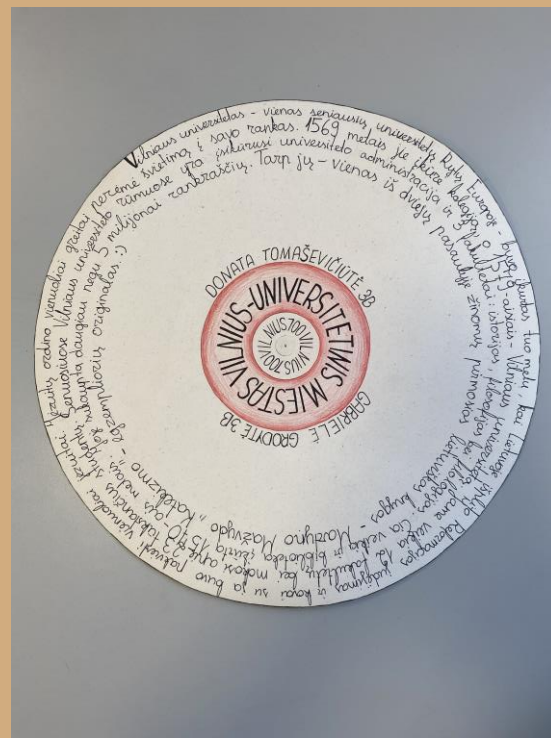 Vilniaus universitetas - vienas seniausių universitetų Rytų Europoje - buvo įkurtas tuo metu, kai Lietuvoje Reformacijos judėjimas ir kovai su ja buvo pakviesti vienuoliai jėzuitai. Jėzuitų ordino vienuoliai greitai
perėmė švietimą į savo rankas. 1569 metais jie įkūrė kolegiją, o 1579-aisiais Vilniaus universitetą. Jame veikia 12 fakultetų bei mokosi apie 23 tūkstančius studentų. Senuosiuose Vilniaus universiteto
rūmuose yra įsikūrusi universiteto administracija ir 3 fakultetai: istorijos, filosofijos bei filologijos. Čia veikia ir biblioteka, įkurta 1570-ais metais - joje sukaupta daugiau negu 5 milijonai
rankraščių. Tarp jų - vienas iš dviejų pasaulyje žinomų pirmosios lietuviškos knygos - Martyno Mažvydo „Katekizmo" - egzempliorių originalas. :)
DONATA TOMAŠEVIČIŪTĖ 3B
GABRIELĖ GRODYTĖ 3B
VILNIUS-UNIVERSITETINIS MIESTAS
VILNIUS 700 VILNIUS 700